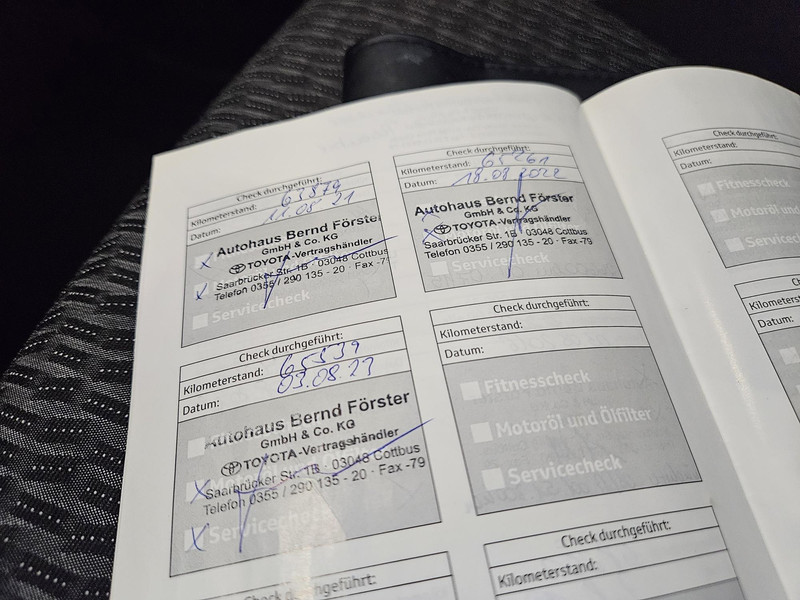 Check durchgeführt:
Kilometerstand: 63879
Datum: 11.08 21
Autohaus Bernd Förster
GmbH & Co. KG
TOYOTA-Vertragshändler
Saarbrücker Str. 1B · 03048 Cottbus
Telefon 0355 / 290 135 - 20 · Fax -7
Servicecheck
Check durchgeführt:
Kilometerstand: 65261
Datum: 18.08.2022
Autohaus Bernd Förster
GmbH & Co. KG
TOYOTA-Vertragshändler
Saarbrücker Str. 1B · 03048 Cottbus
Telefon 0355 / 290 135 - 20 · Fax -79
Servicecheck
Check durchgeführt:
Kilometerstand: 65539
Datum: 03.08.23
Autohaus Bernd Förster
GmbH & Co. KG
TOYOTA-Vertragshändler
Saarbrücker Str. 1B · 03048 Cottbus
Telefon 0355 / 290 135 - 20 · Fax -79
Servicecheck
Check durchgeführt:
Kilometerstand:
Datum:
Fitnesscheck
Motoröl und Ölfilter
Servicecheck
Check durchgeführt:
Check durchgeführt:
Kilometerstand:
Check durchgeführt:
Kilometerstand:
Datum:
Fitnesscheck
Motoröl und
Servicecheck
Check
Kilometerst
Datum: